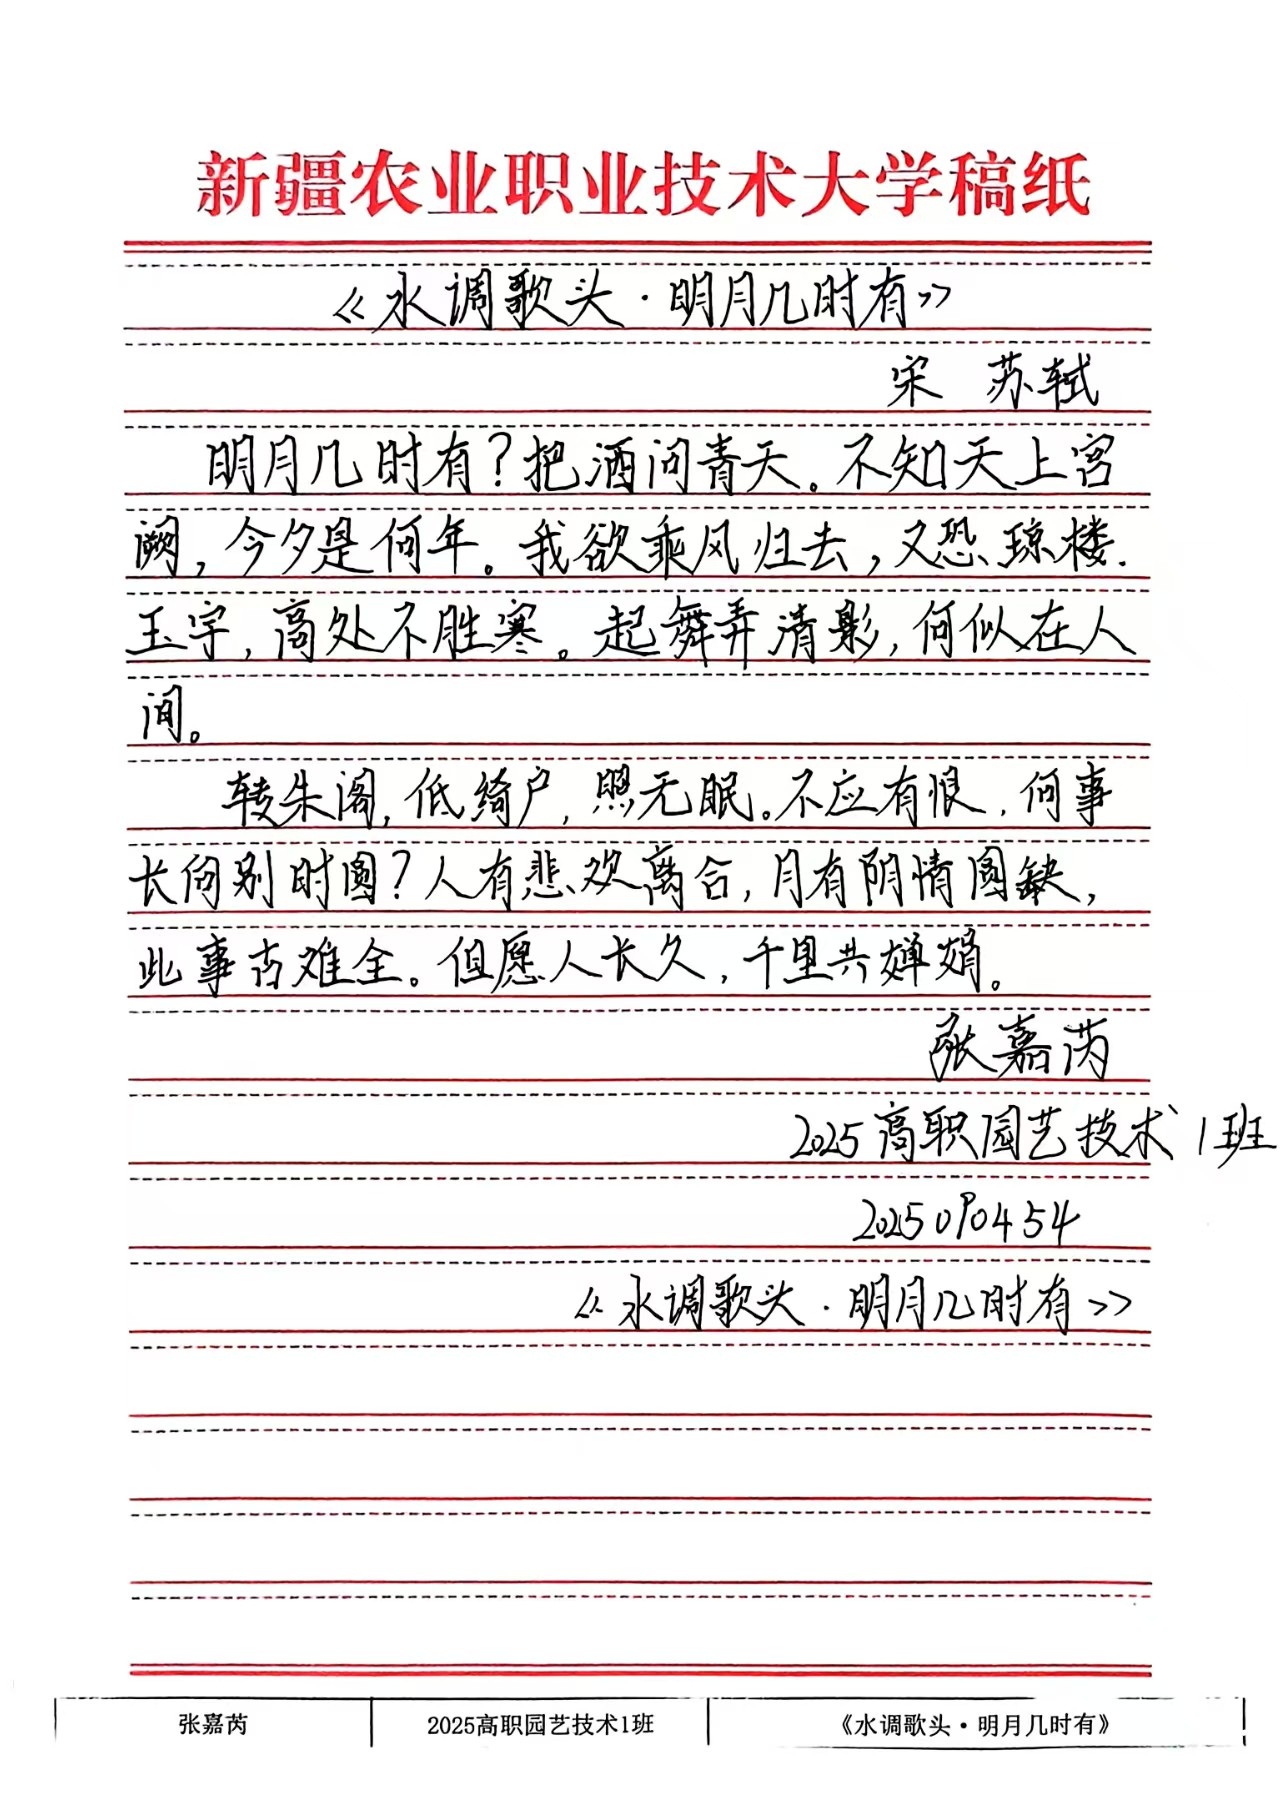 新疆农业职业技术大学稿纸
《水调歌头·明月几时有》
宋 苏轼
明月几时有?把酒问青天。不知天上宫
阙,今夕是何年。我欲乘风归去,又恐琼楼
玉宇,高处不胜寒。起舞弄清影,何似在人
间。
转朱阁,低绮户,照无眠。不应有恨,何事
长向别时圆?人有悲欢离合,月有阴晴圆缺,
此事古难全。但愿人长久,千里共婵娟。
张嘉芮
2025高职园艺技术1班
2025090454
《水调歌头·明月几时有》
张嘉芮 2025高职园艺技术1班 《水调歌头·明月几时有》